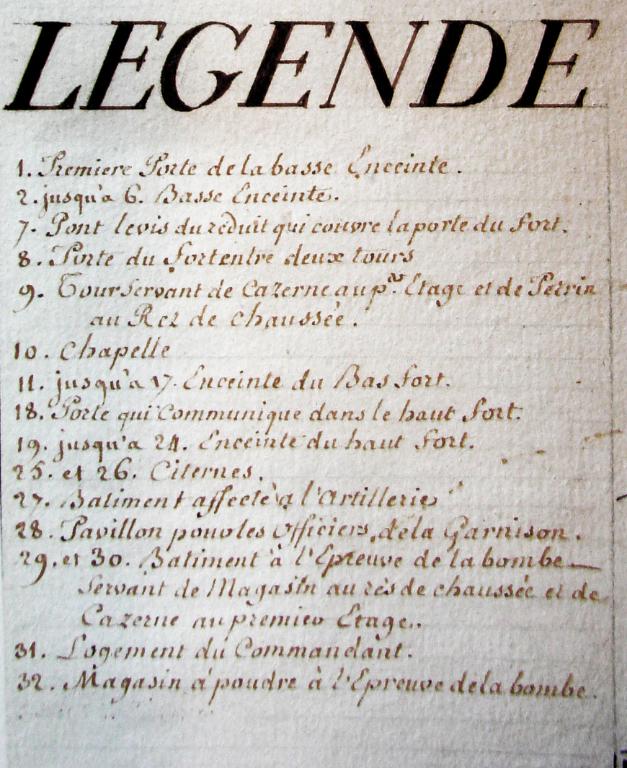 LEGENDE
1. Premiere Porte de la basse Enceinte.
2. jusqu'a 6. Basse Enceinte.
7. Pont levis du reduit qui couvre la porte du Fort.
8. Porte du Fort entre deux tours
9. Tour Servant de Cazerne au p.er Etage et de Perrin
au Rez de chaussée.
10. Chapelle
11. jusqu'a 17. Enceinte du Bas fort.
18. Porte qui Communique dans le haut Fort.
19. jusqu'a 24. Enceinte du haut Fort.
25. et 26. Citernes.
27. Batiment affecté a l'Artillerie
28. Pavillon pour les Officiers de la Garnison.
29. et 30. Batiment à l'Epreuve de la bombe
Servant de Magasin au rés de chaussée et de
Cazerne au premier Etage.
31. Logement du Commandant.
32. Magasin à poudre à l'Epreuve de la bombe.